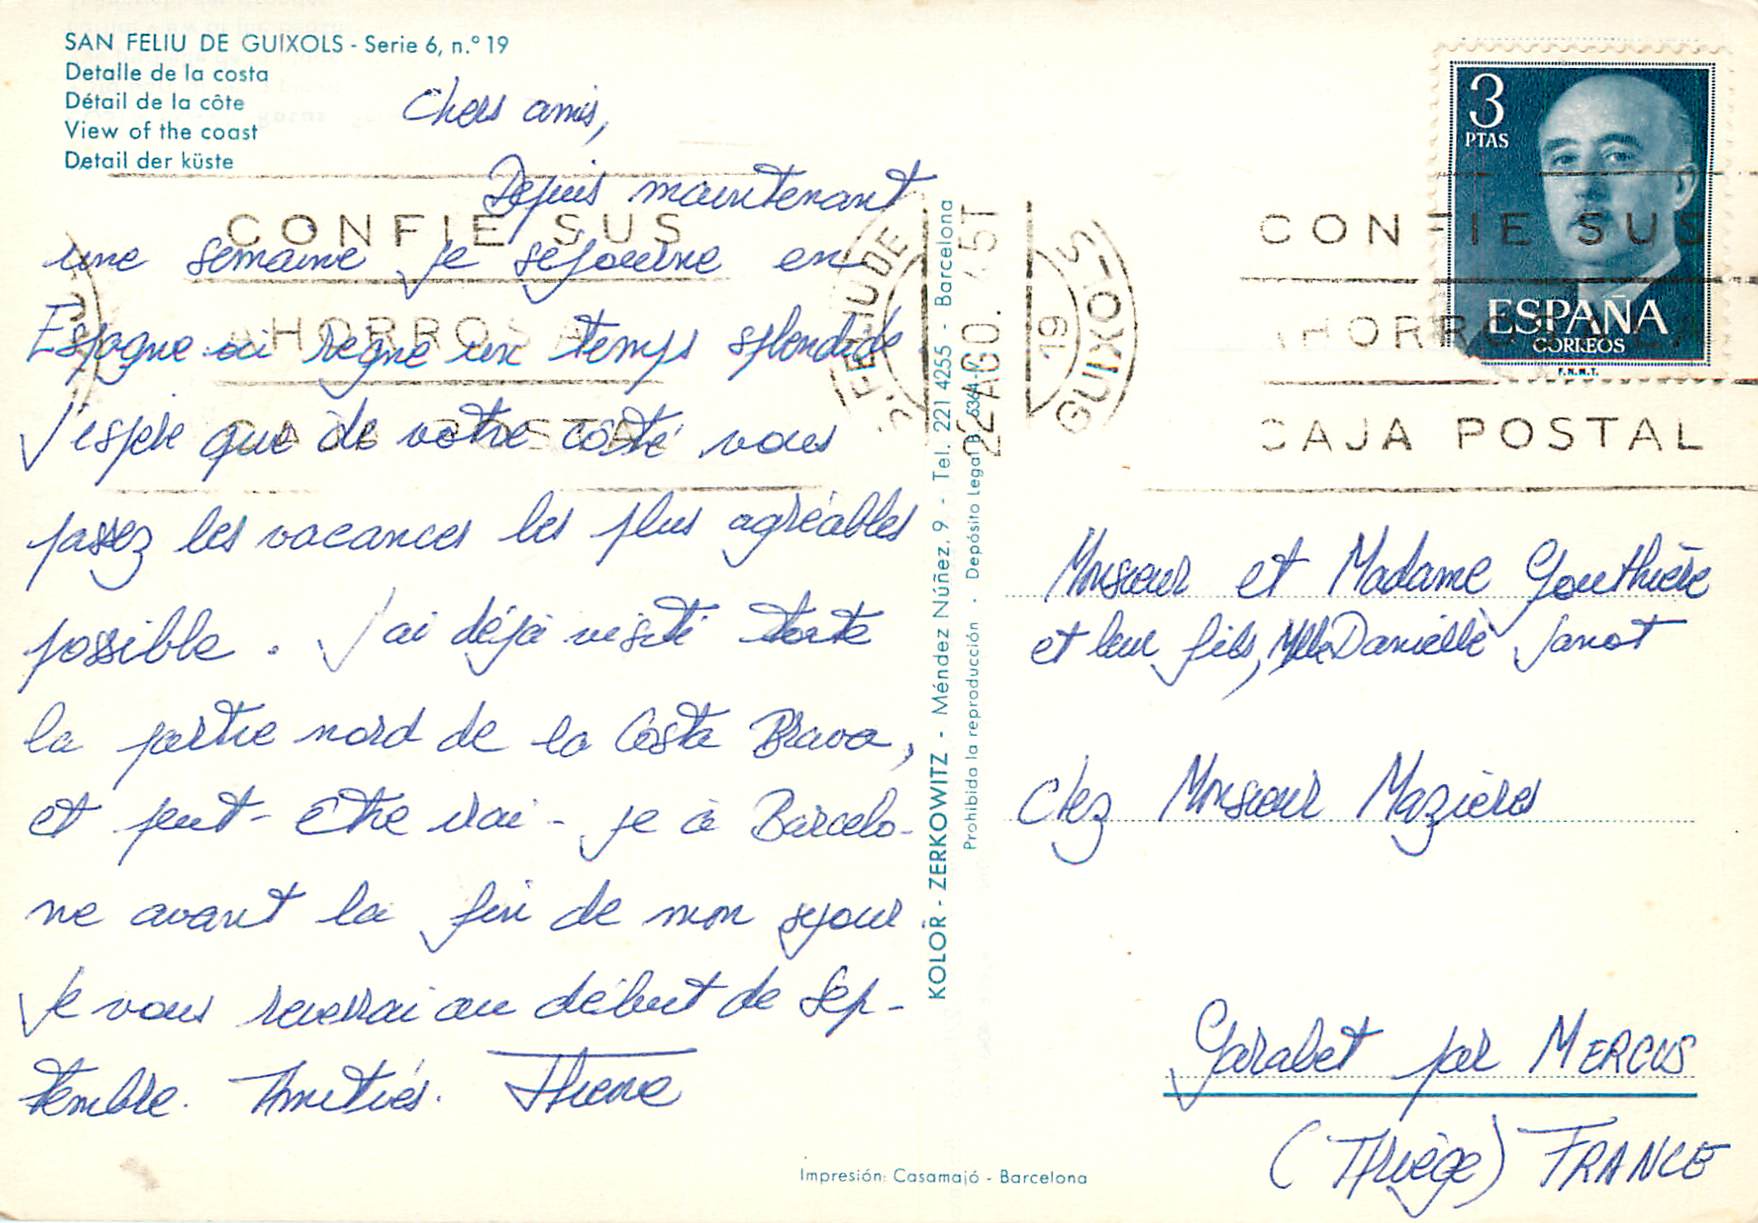 SAN FELIU DE GUIXOLS - Serie 6, n.º 19
Detalle de la costa
Détail de la côte
View of the coast
Detail der küste
Chers amis,
Depuis maintenant
une semaine je séjourne en
Espagne où règne un temps splendide.
J'espère que de votre côté vous
passez les vacances les plus agréables
possible. J'ai déjà visité toute
la partie nord de la Costa Brava,
et peut-être irai-je à Barcelo-
ne avant la fin de mon séjour
Je vous reverrai au début de Sep-
tembre. Amitiés.
Impresión: Casamajó - Barcelona
KOLOR - ZERKOWITZ - Méndez Núñez, 9 - Tel. 221 4255 - Barcelona
Prohibida la reproducción - Depósito Legal B.
S. FELIU DE GUIXOLS
22 AGO. 19
CONFIE SUS
AHORROS A LA
CAJA POSTAL
3
PTAS
ESPAÑA
CORREOS
F.N.M.T.
CONFIE SUS
AHORROS A LA
CAJA POSTAL
Monsieur et Madame Gouthière
et leur fils, Mlle Danielle Janot
Chez Monsieur Mazières
Garabet par MERCUS
(Ariège) FRANCE